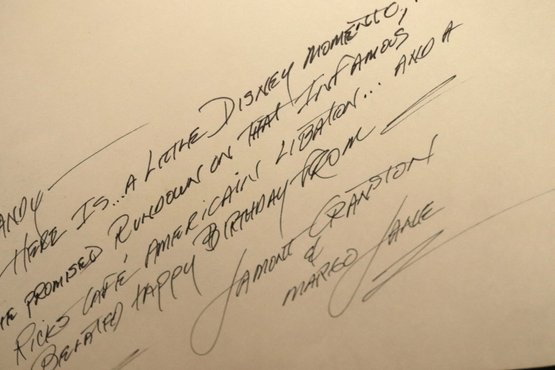 ANDY—
HERE IS...A LITTLE DISNEY MOMENTO,
HE PROMISED RUNDOWN ON THAT INFAMOUS
RICK'S CAFÉ AMERICAIN LIBATION... AND A
BELATED HAPPY BIRTHDAY FROM
LAMONT CRANSTON
&
MARGO LANE